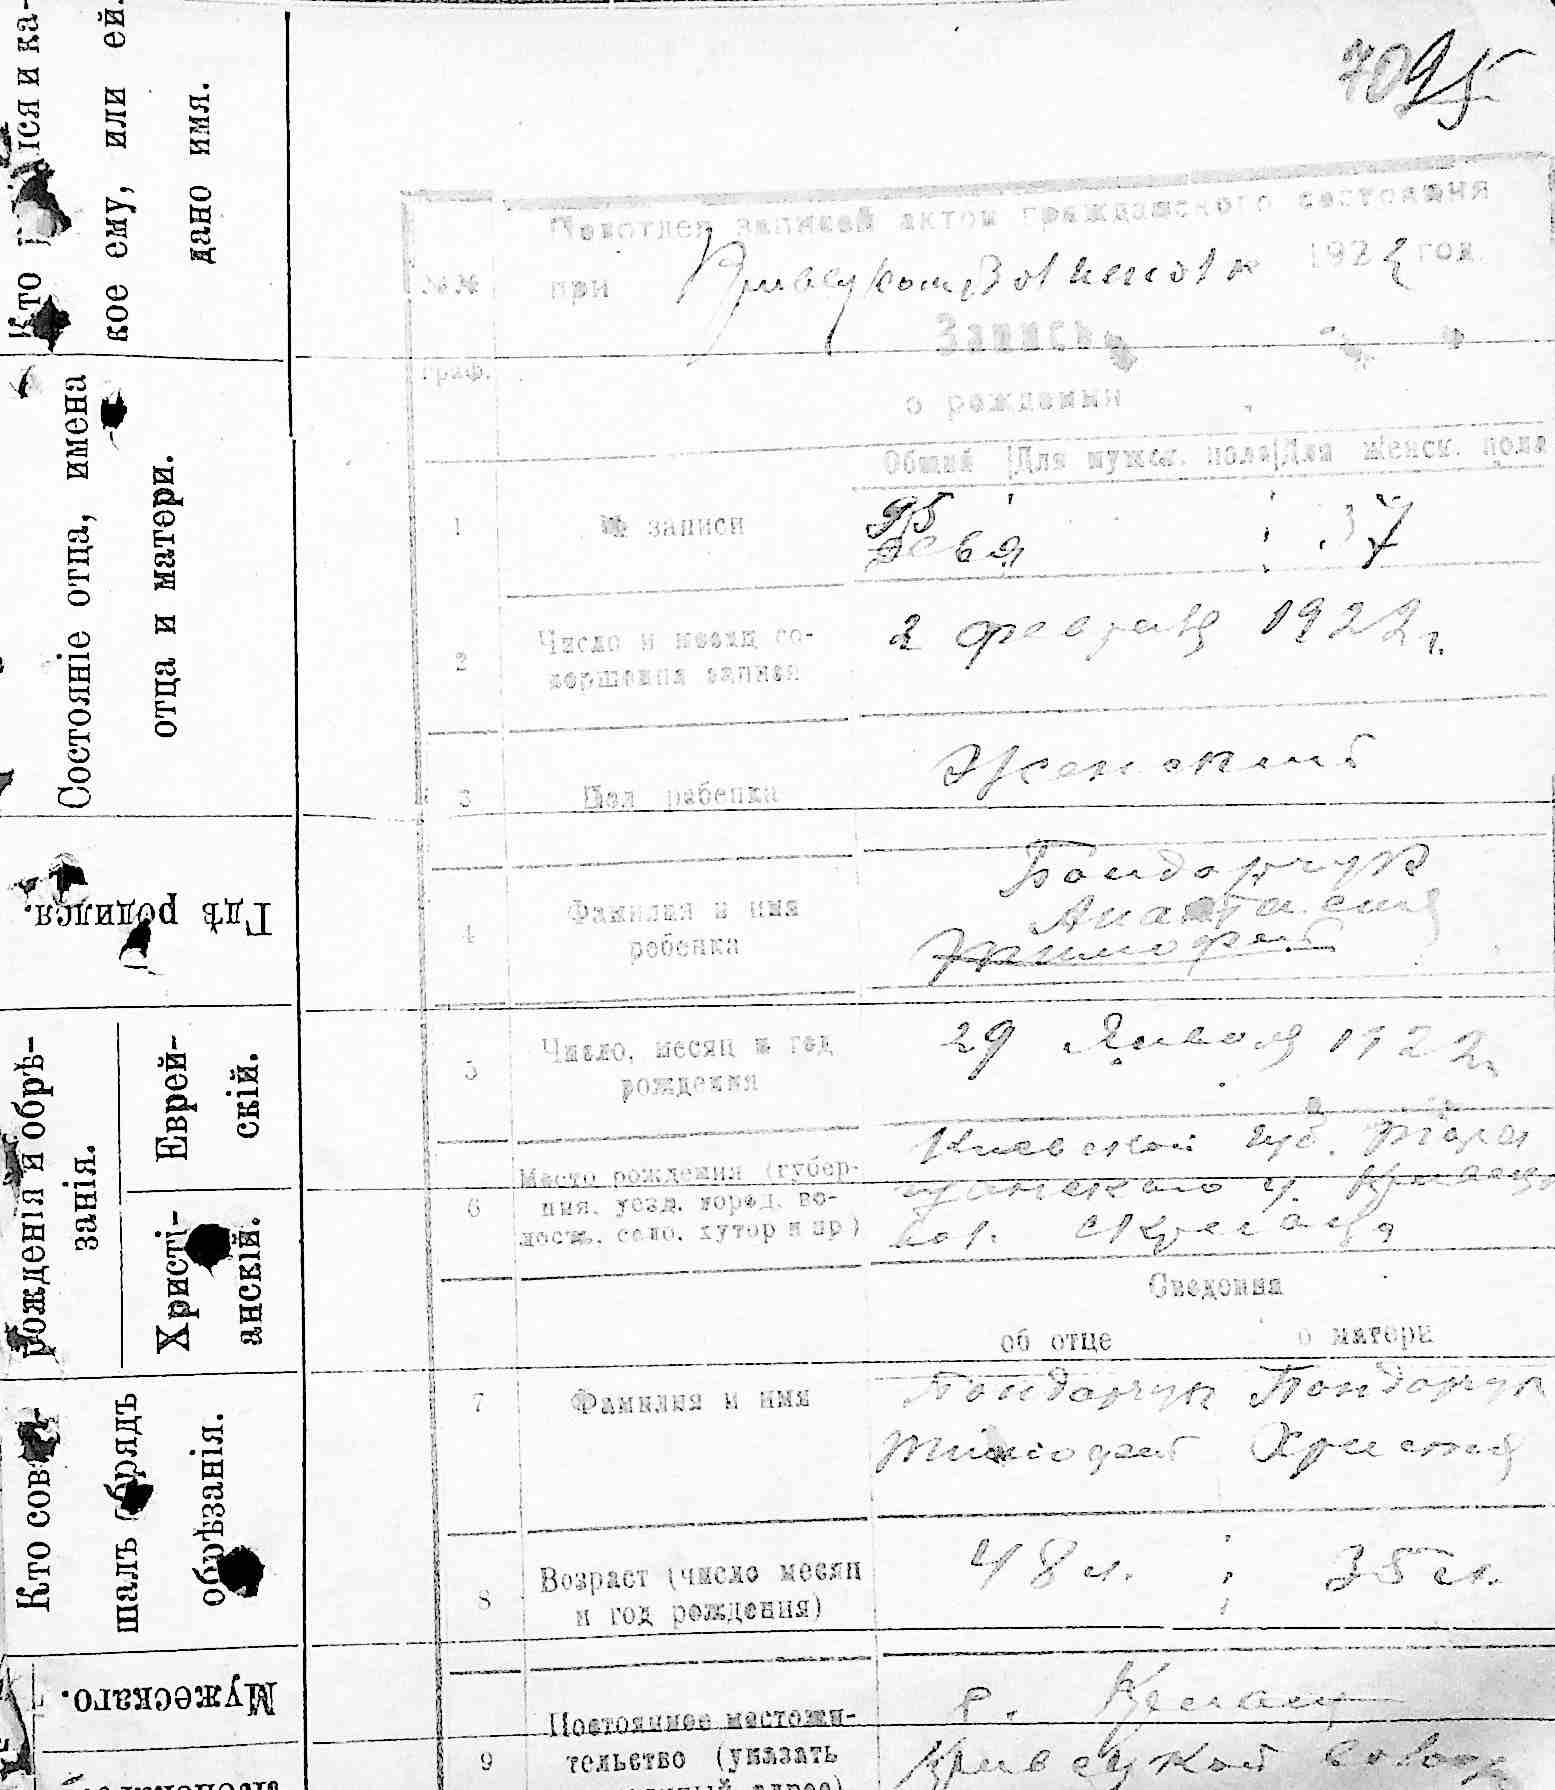 7095
Кто
лся и ка-
кое ему, или ей.
дано имя.
Состояніе отца, имена
отца и матери.
Гдѣ родился.
рожденія и обрѣ-
занія.
Еврей-
скій.
Христі-
анскій.
Кто сов
шалъ обрядъ
обрѣзанія.
Мужескаго.
записей актов гражданского состояния
№№ при 1922 год.
Запись
граф.
о рождении
Общий Для мужск. пола Для женск. пола
1 № записи 95 37
2 Число и месяц со-
вершения записи
2 февраля 1922 г.
3 Пол ребенка Женский
4 Фамилия и имя
ребенка
Бондарчук
Анастасия
Тимофей
5 Число, месяц и год
рождения
29 Января 1922 г.
6 Место рождения (губер-
ния, уезд, город, во-
лость, село, хутор и пр)
Киевской губ. Тара
щанского у.
вол.
Сведения
об отце о матери
7 Фамилия и имя
Бондарчук Бондарчук
Тимофей Христия
8 Возраст (число месяц
и год рождения)
48 л. 35 л.
9 Постоянное местожи-
тельство (указать
адрес)
с.
Кривецкой